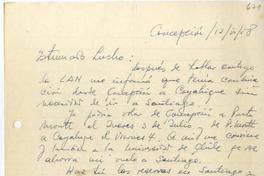 679
Concepción / 12/6/58
Estimado Lucho:
después de hablar contigo
la LAN me informó que tenía combina
ción desde Concepción a Coyahique sin
necesidad de ir a Santiago.
Yo podría volar de Concepción a Puerto
Montt el Jueves 3 de Julio y de P. Montt
a Coyahique el Viernes 4. A mí me conviene
y también a la Universidad de Chile que se
ahorra así vuelo a Santiago.
las reservas en Santiago